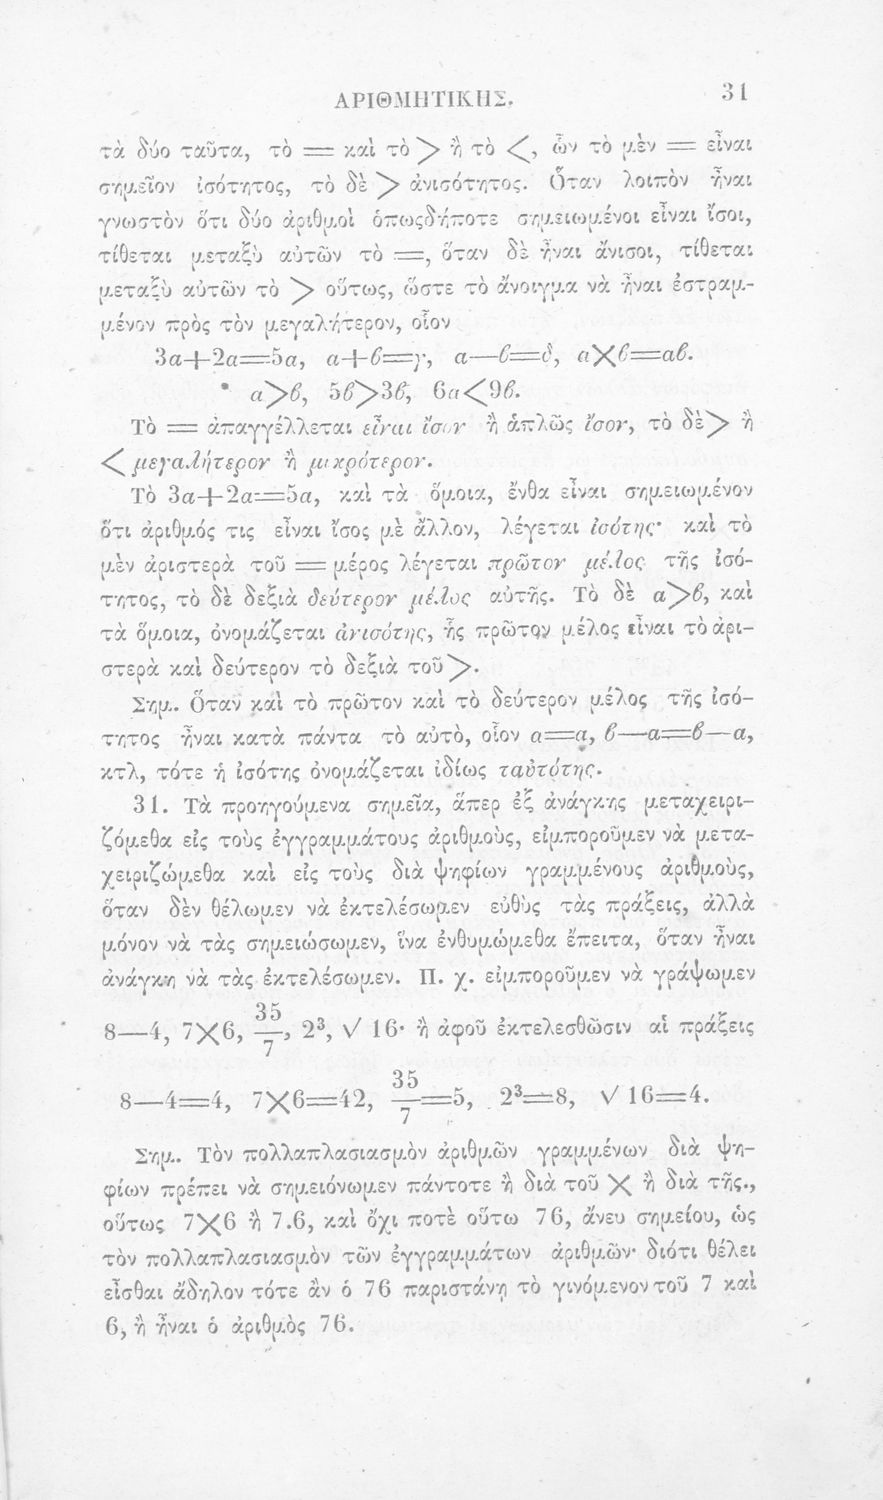 ΑΡΙΘΜΗΤΙΚΗΣ. 31
τὰ δύο ταῦτα, τὸ = καὶ τὸ > ἢ τὸ <, ὧν τὸ μὲν = εἶναι
σημεῖον ἰσότητος, τὸ δὲ > ἀνισότητος. Ὅταν λοιπὸν ἦναι
γνωστὸν ὅτι δύο ἀριθμοὶ ὁπωςδήποτε σημειωμένοι εἶναι ἴσοι,
τίθεται μεταξὺ αὐτῶν τὸ =, ὅταν δὲ ἦναι ἄνισοι, τίθεται
μεταξὺ αὐτῶν τὸ > οὕτως, ὥστε τὸ ἄνοιγμα νὰ ἦναι ἐστραμ-
μένον πρὸς τὸν μεγαλήτερον, οἷον
3α+2α=5α, α+β=γ, α—β=δ, α×β=αβ.
α>β, 5β>3β, 6α<9β.
Τὸ = ἀπαγγέλλεται εἶναι ἴσον ἢ ἁπλῶς ἴσον, τὸ δὲ> ἢ
< μεγαλήτερον ἢ μικρότερον.
Τὸ 3α+2α=5α, καὶ τὰ ὅμοια, ἔνθα εἶναι σημειωμένον
ὅτι ἀριθμός τις εἶναι ἴσος μὲ ἄλλον, λέγεται ἰσότης· καὶ τὸ
μὲν ἀριστερὰ τοῦ = μέρος λέγεται πρῶτον μέλος τῆς ἰσό-
τητος, τὸ δὲ δεξιὰ δεύτερον μέλος αὐτῆς. Τὸ δὲ α>β, καὶ
τὰ ὅμοια, ὀνομάζεται ἀνισότης, ἧς πρῶτον μέλος εἶναι τὸ ἀρι-
στερὰ καὶ δεύτερον τὸ δεξιὰ τοῦ >.
Σημ. Ὅταν καὶ τὸ πρῶτον καὶ τὸ δεύτερον μέλος τῆς ἰσό-
τητος ἦναι κατὰ πάντα τὸ αὐτὸ, οἷον α=α, β—α=β—α,
κτλ, τότε ἡ ἰσότης ὀνομάζεται ἰδίως ταὐτότης.
31. Τὰ προηγούμενα σημεῖα, ἅπερ ἐξ ἀνάγκης μεταχειρι-
ζόμεθα εἰς τοὺς ἐγγραμμάτους ἀριθμοὺς, εἰμποροῦμεν νὰ μετα-
χειριζώμεθα καὶ εἰς τοὺς διὰ ψηφίων γραμμένους ἀριθμοὺς,
ὅταν δὲν θέλωμεν νὰ ἐκτελέσωμεν εὐθὺς τὰς πράξεις, ἀλλὰ
μόνον νὰ τὰς σημειώσωμεν, ἵνα ἐνθυμώμεθα ἔπειτα, ὅταν ἦναι
ἀνάγκη νὰ τὰς ἐκτελέσωμεν. Π. χ. εἰμποροῦμεν νὰ γράψωμεν
8—4, 7×6, 35/7, 2³, √ 16· ἢ ἀφοῦ ἐκτελεσθῶσιν αἱ πράξεις
8—4=4, 7×6=42, 35/7=5, 2³=8, √ 16=4.
Σημ. Τὸν πολλαπλασιασμὸν ἀριθμῶν γραμμένων διὰ ψη-
φίων πρέπει νὰ σημειόνωμεν πάντοτε ἢ διὰ τοῦ × ἢ διὰ τῆς.,
οὕτως 7×6 ἢ 7.6, καὶ ὄχι ποτὲ οὕτω 76, ἄνευ σημείου, ὡς
τὸν πολλαπλασιασμὸν τῶν ἐγγραμμάτων ἀριθμῶν· διότι θέλει
εἶσθαι ἄδηλον τότε ἂν ὁ 76 παριστάνῃ τὸ γινόμενον τοῦ 7 καὶ
6, ἢ ἦναι ὁ ἀριθμὸς 76.